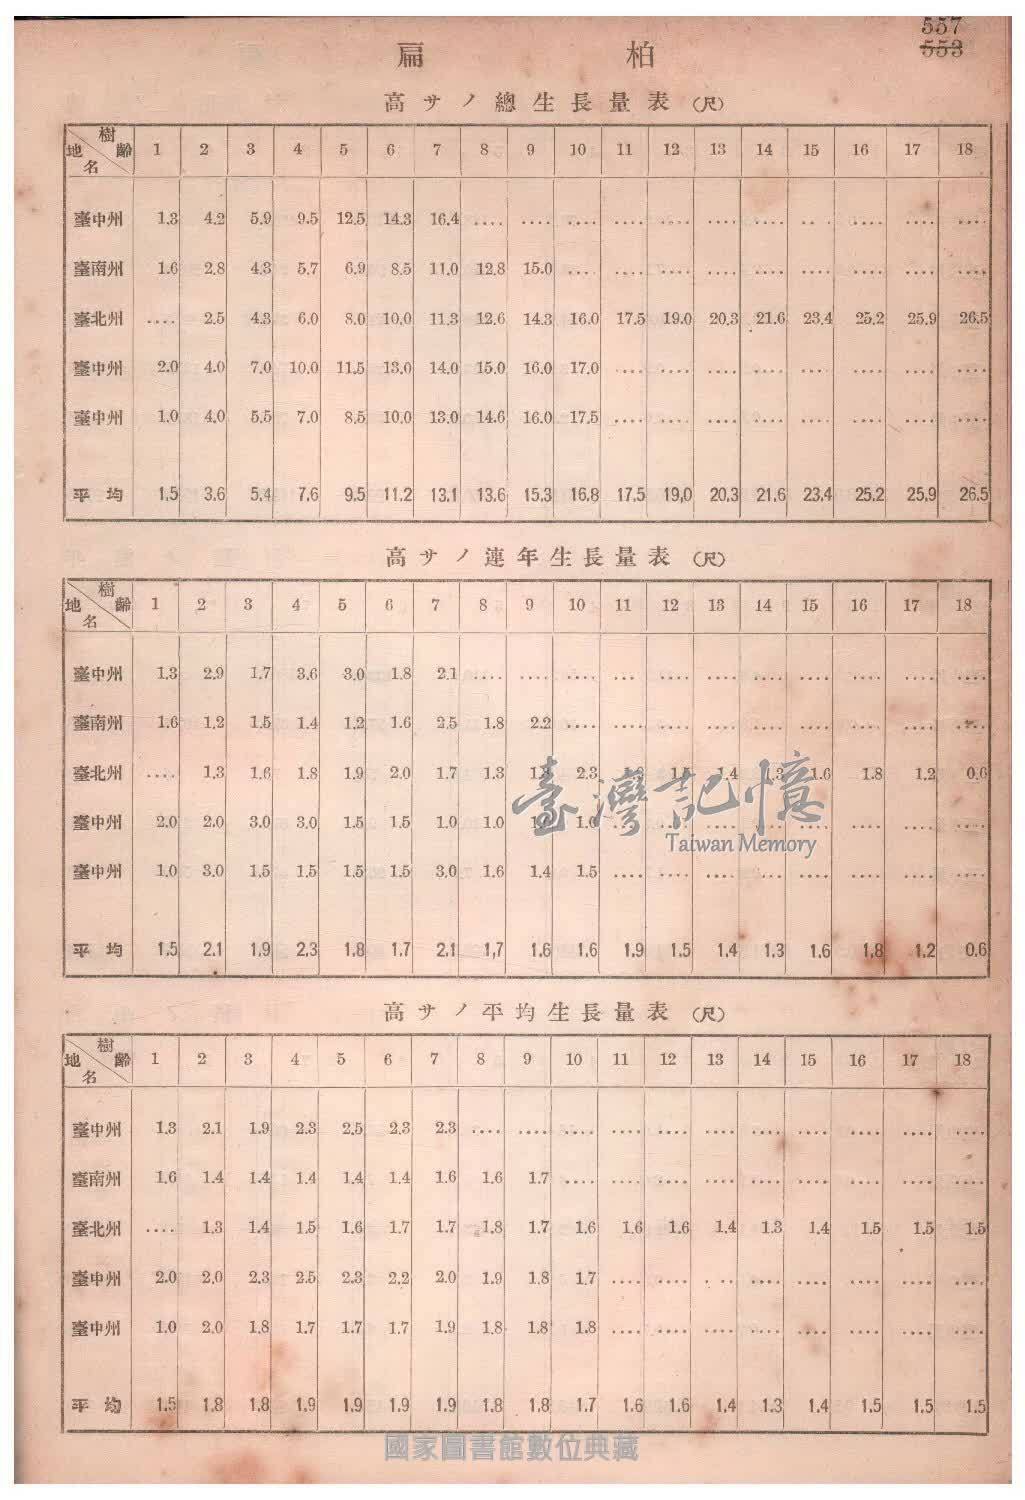 557
553
扁 柏
高サノ總生長量表 (尺)
樹齡 地名 1 2 3 4 5 6 7 8 9 10 11 12 13 14 15 16 17 18
臺中州 1.3 4.2 5.9 9.5 12.5 14.3 16.4 .... .... .... .... .... .... .... .... .... .... ....
臺南州 1.6 2.8 4.3 5.7 6.9 8.5 11.0 12.8 15.0 .... .... .... .... .... .... .... .... ....
臺北州 .... 2.5 4.3 6.0 8.0 10.0 11.3 12.6 14.3 16.0 17.5 19.0 20.3 21.6 23.4 25.2 25.9 26.5
臺中州 2.0 4.0 7.0 10.0 11.5 13.0 14.0 15.0 16.0 17.0 .... .... .... .... .... .... .... ....
臺中州 1.0 4.0 5.5 7.0 8.5 10.0 13.0 14.6 16.0 17.5 .... .... .... .... .... .... .... ....
平均 1.5 3.6 5.4 7.6 9.5 11.2 13.1 13.6 15.3 16.8 17.5 19.0 20.3 21.6 23.4 25.2 25.9 26.5
高サノ連年生長量表 (尺)
樹齡 地名 1 2 3 4 5 6 7 8 9 10 11 12 13 14 15 16 17 18
臺中州 1.3 2.9 1.7 3.6 3.0 1.8 2.1 .... .... .... .... .... .... .... .... .... .... ....
臺南州 1.6 1.2 1.5 1.4 1.2 1.6 2.5 1.8 2.2 .... .... .... .... .... .... .... .... ....
臺北州 .... 1.3 1.6 1.8 1.9 2.0 1.7 1.3 1.8 2.3 1.5 1.4 1.3 1.6 1.8 1.2 0.6
臺中州 2.0 2.0 3.0 3.0 1.5 1.5 1.0 1.0 1.0 .... .... .... .... .... .... .... ....
臺中州 1.0 3.0 1.5 1.5 1.5 1.5 3.0 1.6 1.4 1.5 .... .... .... .... .... .... .... ....
平均 1.5 2.1 1.9 2.3 1.8 1.7 2.1 1.7 1.6 1.6 1.9 1.5 1.4 1.3 1.6 1.8 1.2 0.6
臺灣記憶
Taiwan Memory
高サノ平均生長量表 (尺)
樹齡 地名 1 2 3 4 5 6 7 8 9 10 11 12 13 14 15 16 17 18
臺中州 1.3 2.1 1.9 2.3 2.5 2.3 2.3 .... .... .... .... .... .... .... .... .... .... ....
臺南州 1.6 1.4 1.4 1.4 1.4 1.4 1.6 1.6 1.7 .... .... .... .... .... .... .... .... ....
臺北州 .... 1.3 1.4 1.5 1.6 1.7 1.7 1.8 1.7 1.6 1.6 1.6 1.4 1.3 1.4 1.5 1.5 1.5
臺中州 2.0 2.0 2.3 2.5 2.3 2.2 2.0 1.9 1.8 1.7 .... .... .... .... .... .... .... ....
臺中州 1.0 2.0 1.8 1.7 1.7 1.7 1.9 1.8 1.8 1.8 .... .... .... .... .... .... .... ....
平均 1.5 1.8 1.8 1.9 1.9 1.9 1.9 1.8 1.8 1.7 1.6 1.6 1.4 1.3 1.4 1.5 1.5 1.5
國家圖書館數位典藏